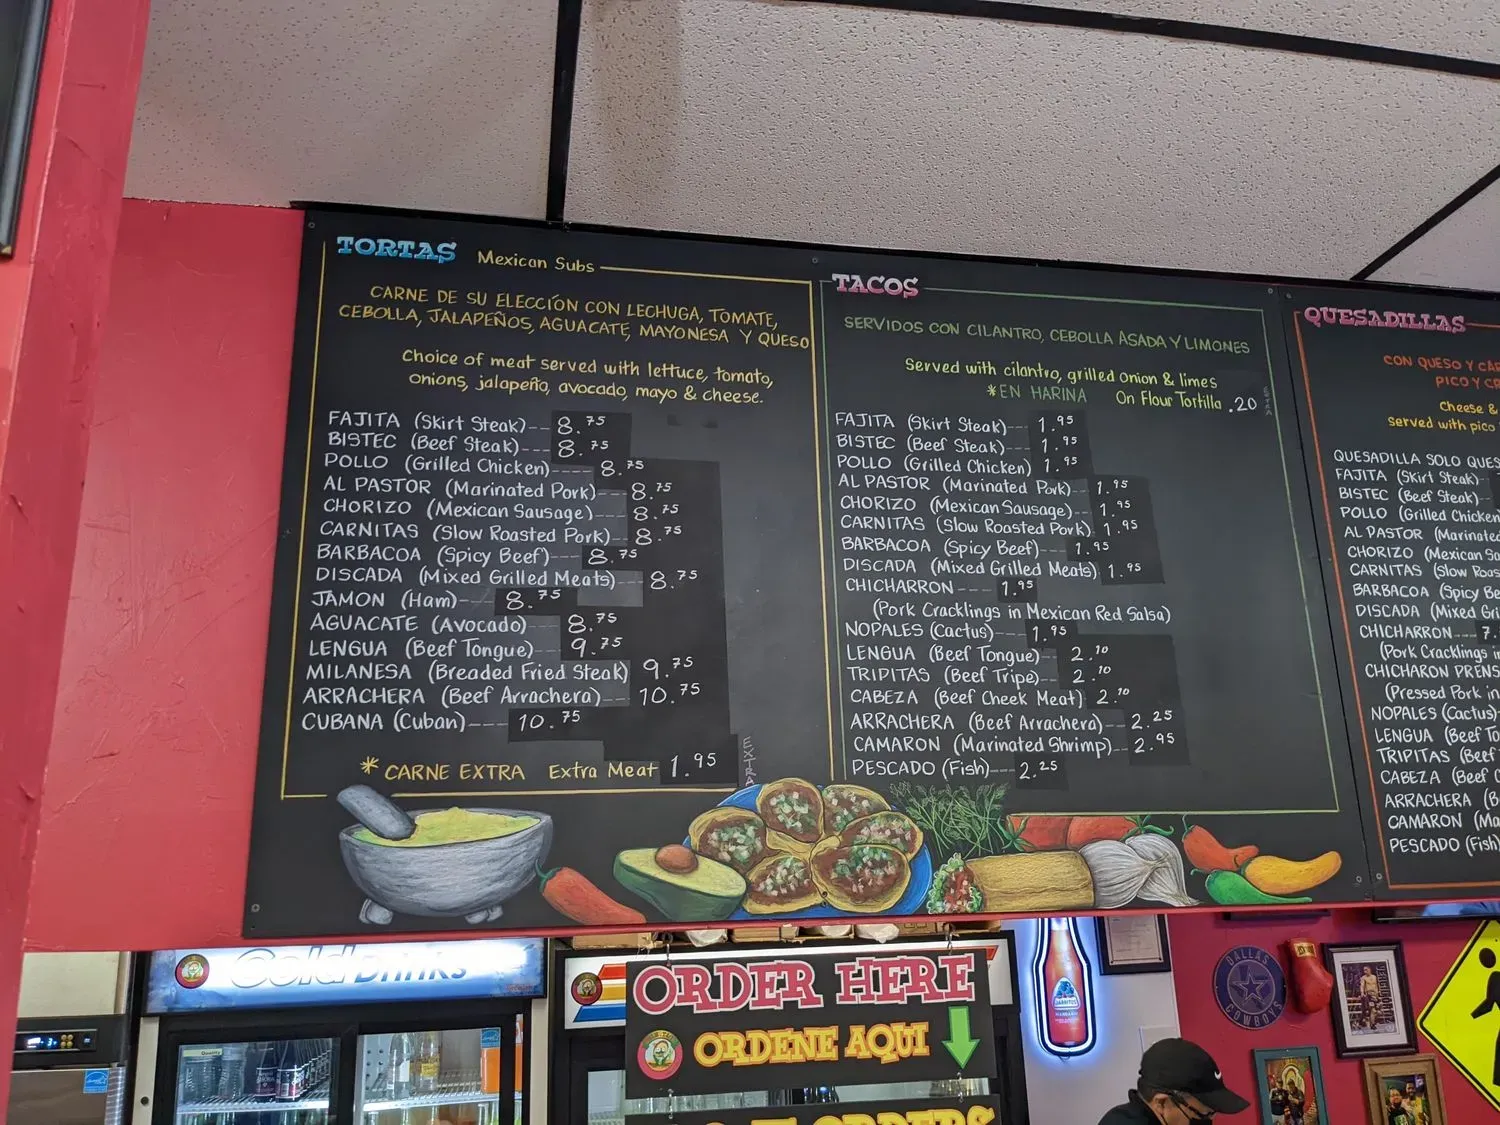 TORTAS Mexican Subs
CARNE DE SU ELECCIÓN CON LECHUGA, TOMATE,
CEBOLLA, JALAPEÑOS, AGUACATE, MAYONESA Y QUESO
Choice of meat served with lettuce, tomato,
onions, jalapeño, avocado, mayo & cheese.
FAJITA (Skirt Steak)-- 8.75
BISTEC (Beef Steak)-- 8.75
POLLO (Grilled Chicken)---- 8.75
AL PASTOR (Marinated Pork)-- 8.75
CHORIZO (Mexican Sausage)--- 8.75
CARNITAS (Slow Roasted Pork)-- 8.75
BARBACOA (Spicy Beef)--- 8.75
DISCADA (Mixed Grilled Meats)--- 8.75
JAMON (Ham)--- 8.75
AGUACATE (Avocado)---- 8.75
LENGUA (Beef Tongue)--- 9.75
MILANESA (Breaded Fried Steak) 9.75
ARRACHERA (Beef Arrachera)--- 10.75
CUBANA (Cuban)--- 10.75
* CARNE EXTRA Extra Meat 1.95
EXTRA
TACOS
SERVIDOS CON CILANTRO, CEBOLLA ASADA Y LIMONES
Served with cilantro, grilled onion & limes
*EN HARINA On Flour Tortilla .20
EXTRA
FAJITA (Skirt Steak)--- 1.95
BISTEC (Beef Steak)--- 1.95
POLLO (Grilled Chicken) 1.95
AL PASTOR (Marinated Pork)-- 1.95
CHORIZO (Mexican Sausage)--- 1.95
CARNITAS (Slow Roasted Pork)-- 1.95
BARBACOA (Spicy Beef)--- 1.95
DISCADA (Mixed Grilled Meats) 1.95
CHICHARRON---- 1.95
(Pork Cracklings in Mexican Red Salsa)
NOPALES (Cactus)--- 1.95
LENGUA (Beef Tongue)-- 2.10
TRIPITAS (Beef Tripe)--- 2.10
CABEZA (Beef Cheek Meat) 2.10
ARRACHERA (Beef Arrachera)-- 2.25
CAMARON (Marinated Shrimp)-- 2.95
PESCADO (Fish)--- 2.25
QUESADILLAS
CON QUESO Y
PICO Y
Cheese &
Served with pico
QUESADILLA SOLO
FAJITA (Skirt Steak)
BISTEC (Beef Steak)
POLLO (Grilled Chicken
AL PASTOR (Marinated
CHORIZO (Mexican
CARNITAS (Slow
BARBACOA (Spicy
DISCADA (Mixed
CHICHARRON--- 7.
(Pork Cracklings
CHICHARON
(Pressed Pork in
NOPALES (Cactus)
LENGUA (Beef
TRIPITAS (Beef
CABEZA (Beef
ARRACHERA
CAMARON
PESCADO (Fish)
Cold Drinks
ORDER HERE
ORDENE AQUI
ORDERS
JARRITOS
DALLAS
COWBOYS